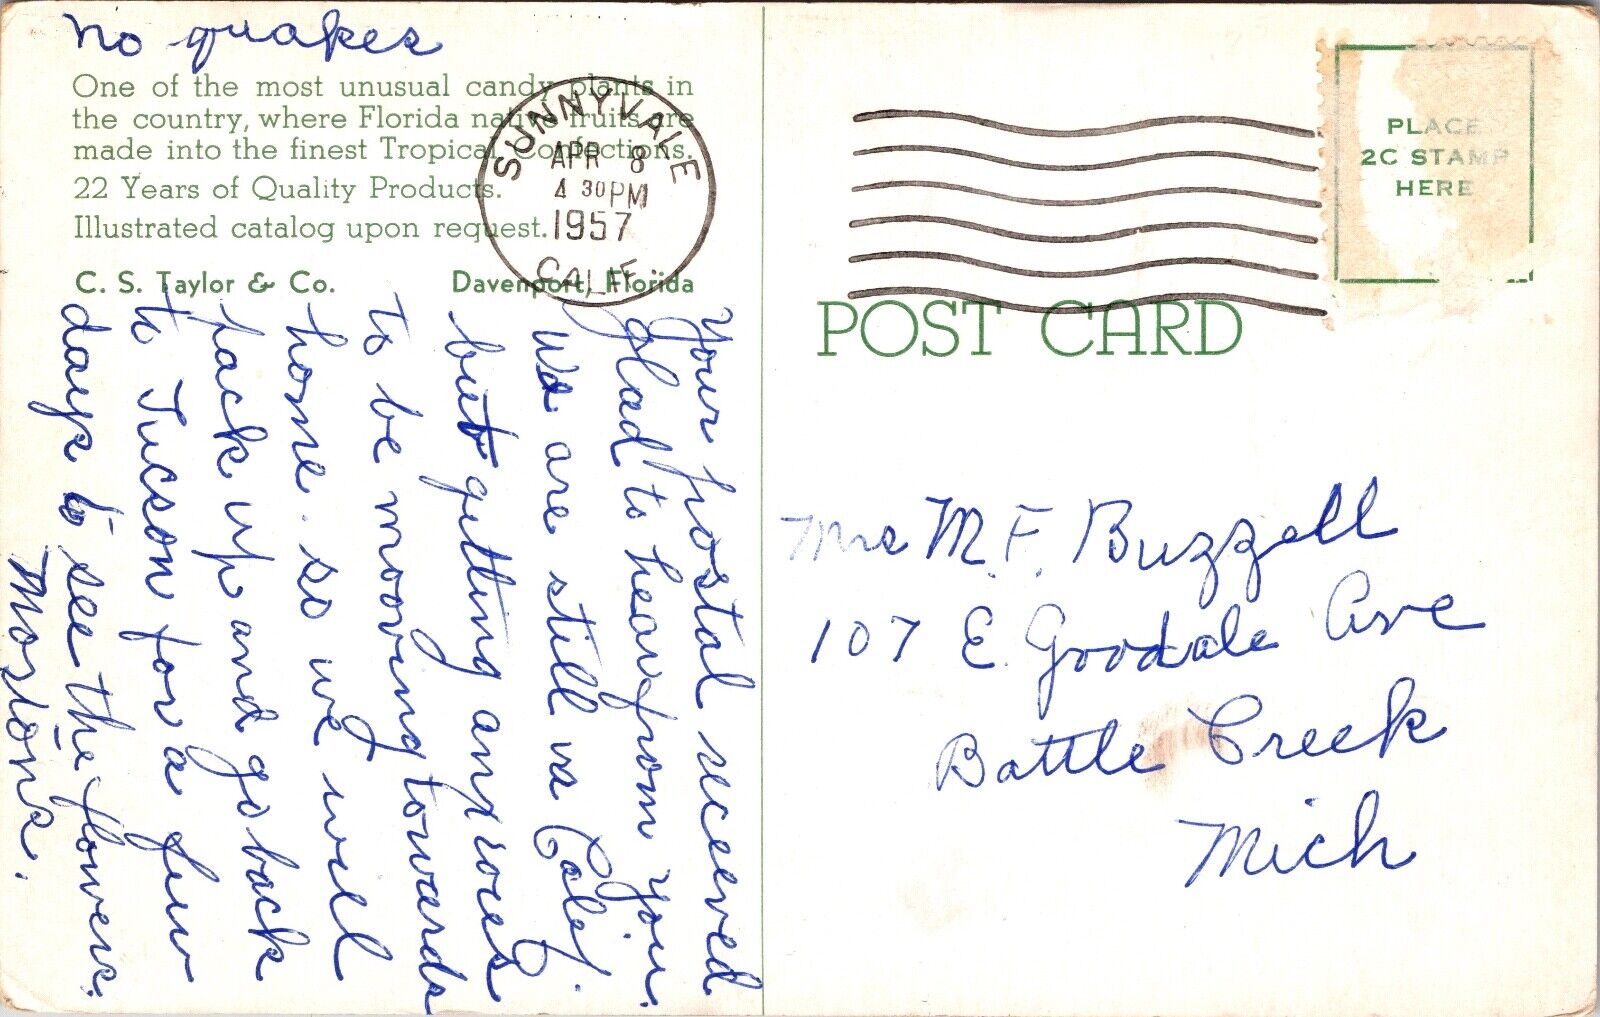 no quakes
One of the most unusual candy plants in
the country, where Florida native fruits are
made into the finest Tropical Confections.
22 Years of Quality Products.
Illustrated catalog upon request.
C. S. Taylor & Co. Davenport, Florida
SUNNYVALE
APR 8
4 30 PM
1957
CALIF.
Your postal received
glad to hear from you.
We are still in Calif.
but getting anxious
to be mooving towards
home. so we will
pack up and go back
to Tucson for a few
days to see the flowers.
PLACE
2C STAMP
HERE
POST CARD
Mrs M. F. Buzzell
107 E. Goodale Ave
Battle Creek
Mich